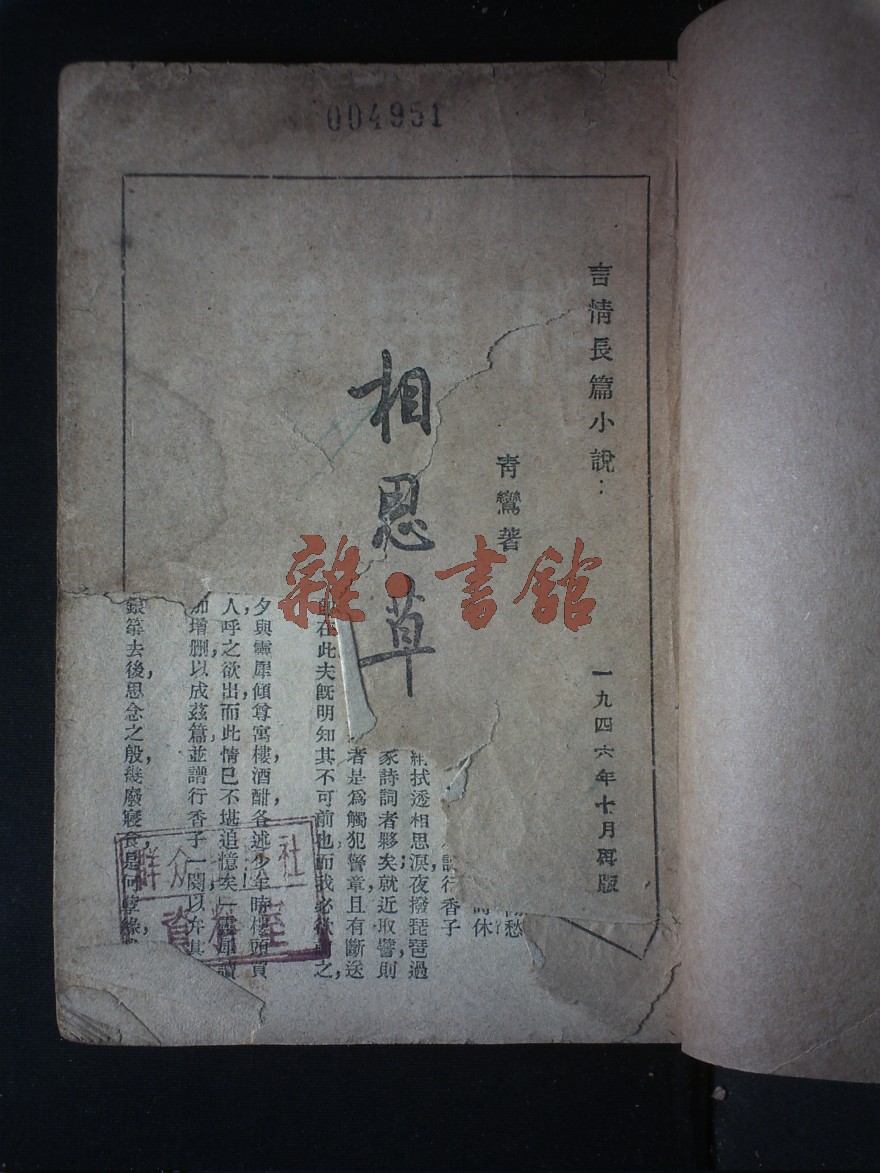 004951
言情長篇小說：
青鸞著
相思草
一九四六年十月再版
愁
休
行香子
拭透相思淚夜撥琵琶過
家詩詞者夥矣就近取譬則
者是為觸犯警章且有斷送
在此夫既明知其不可前也而我必欲之，
夕與靈犀傾尊寓樓酒酣各述少年時樓頭買
人，呼之欲出而此情已不堪追憶矣
加增刪以成茲篇並譜行香子一闋以弁其
銀箏去後，思念之殷，幾廢寢食，是何孽緣，
群众社
資室
雜·書館